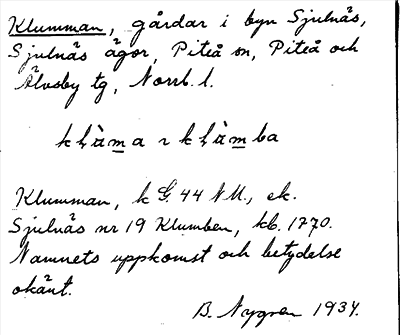 Klumman, gårdar i byn Sjulnäs,
Sjulnäs ägor, Piteå sn, Piteå och
Älvsby tg, Norrb. l.
klàma ɿ klàmba
Klumman, k G. 44 NU., ek.
Sjulnäs nr 19 Klumben, kb. 1770.
Namnets uppkomst och betydelse
okänt.
B. Nygren 1934.